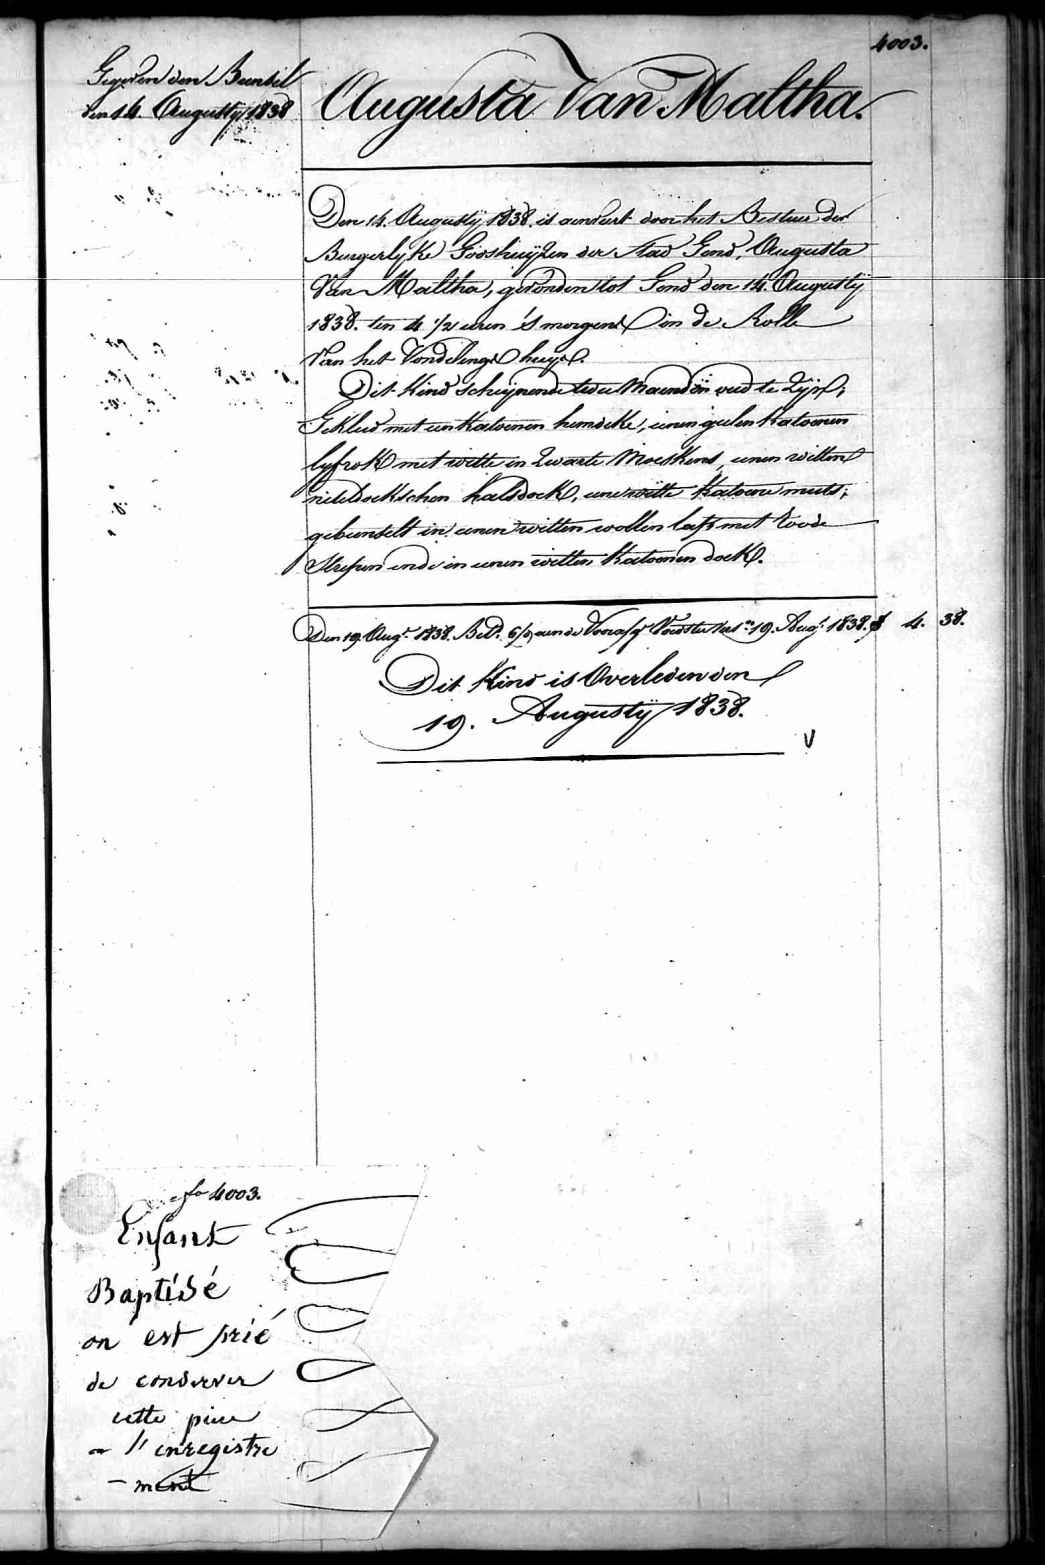 4003.
Gegeven den Bundel
den 14. Augustÿ 1838
Augusta Van Maltha.
Den 14. Augustÿ 1838. is aenveirt door het Bestuer der
Burgerlÿke Godshuÿzen der Stad Gend, Augusta
Van Maltha, gevonden tot Gend den 14 Augustÿ
1838. ten 4 1/2 uren 's morgens in de Rolle
Van het Vondelings huÿs.
Dit Kind schijnende twee Maenden oud te Zijn;
Gekleed met een Katoenen hemdeke, eenen geelen Katoenen
lijfrok met witte en Zwarte Moeskens, eenen witten
neteldoekschen halsdoek, eene witte Katoene muts;
gebunselt in eenen witten wollen laps met Roode
Strepen ende in eenen witten Katoenen doek.
Den 19. Augt. 1838. Betd. aen de Voedster 19. Augt. 1838. f 4. 38.
Dit Kind is Overleden den
19. Augustÿ 1838.
V
fo 4003.
Enfant
Baptisé
on est prié
de conserver
cette piece
a l'enregistre
- ment